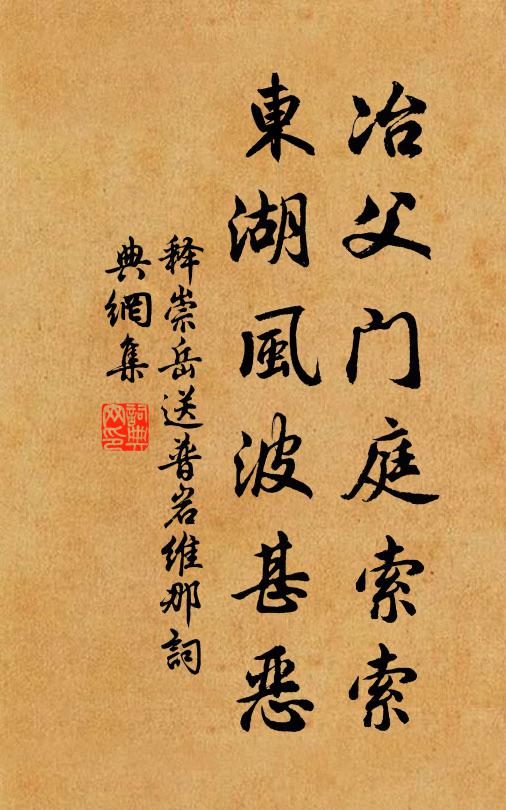 冶父门庭索索
東湖風波甚恶
释崇岳送普岩维那詞
典網集
詞典网印